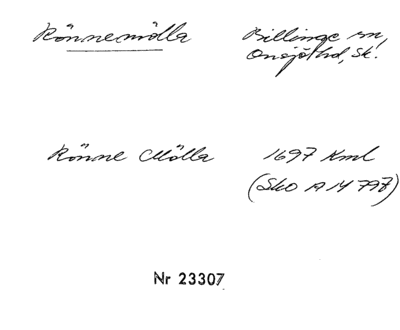 Rönnemölla
Billinge sn,
Onsjö hd, Sk.
Rönne Mölla
1697 Kml
(Sko A M 797)
Nr 23307